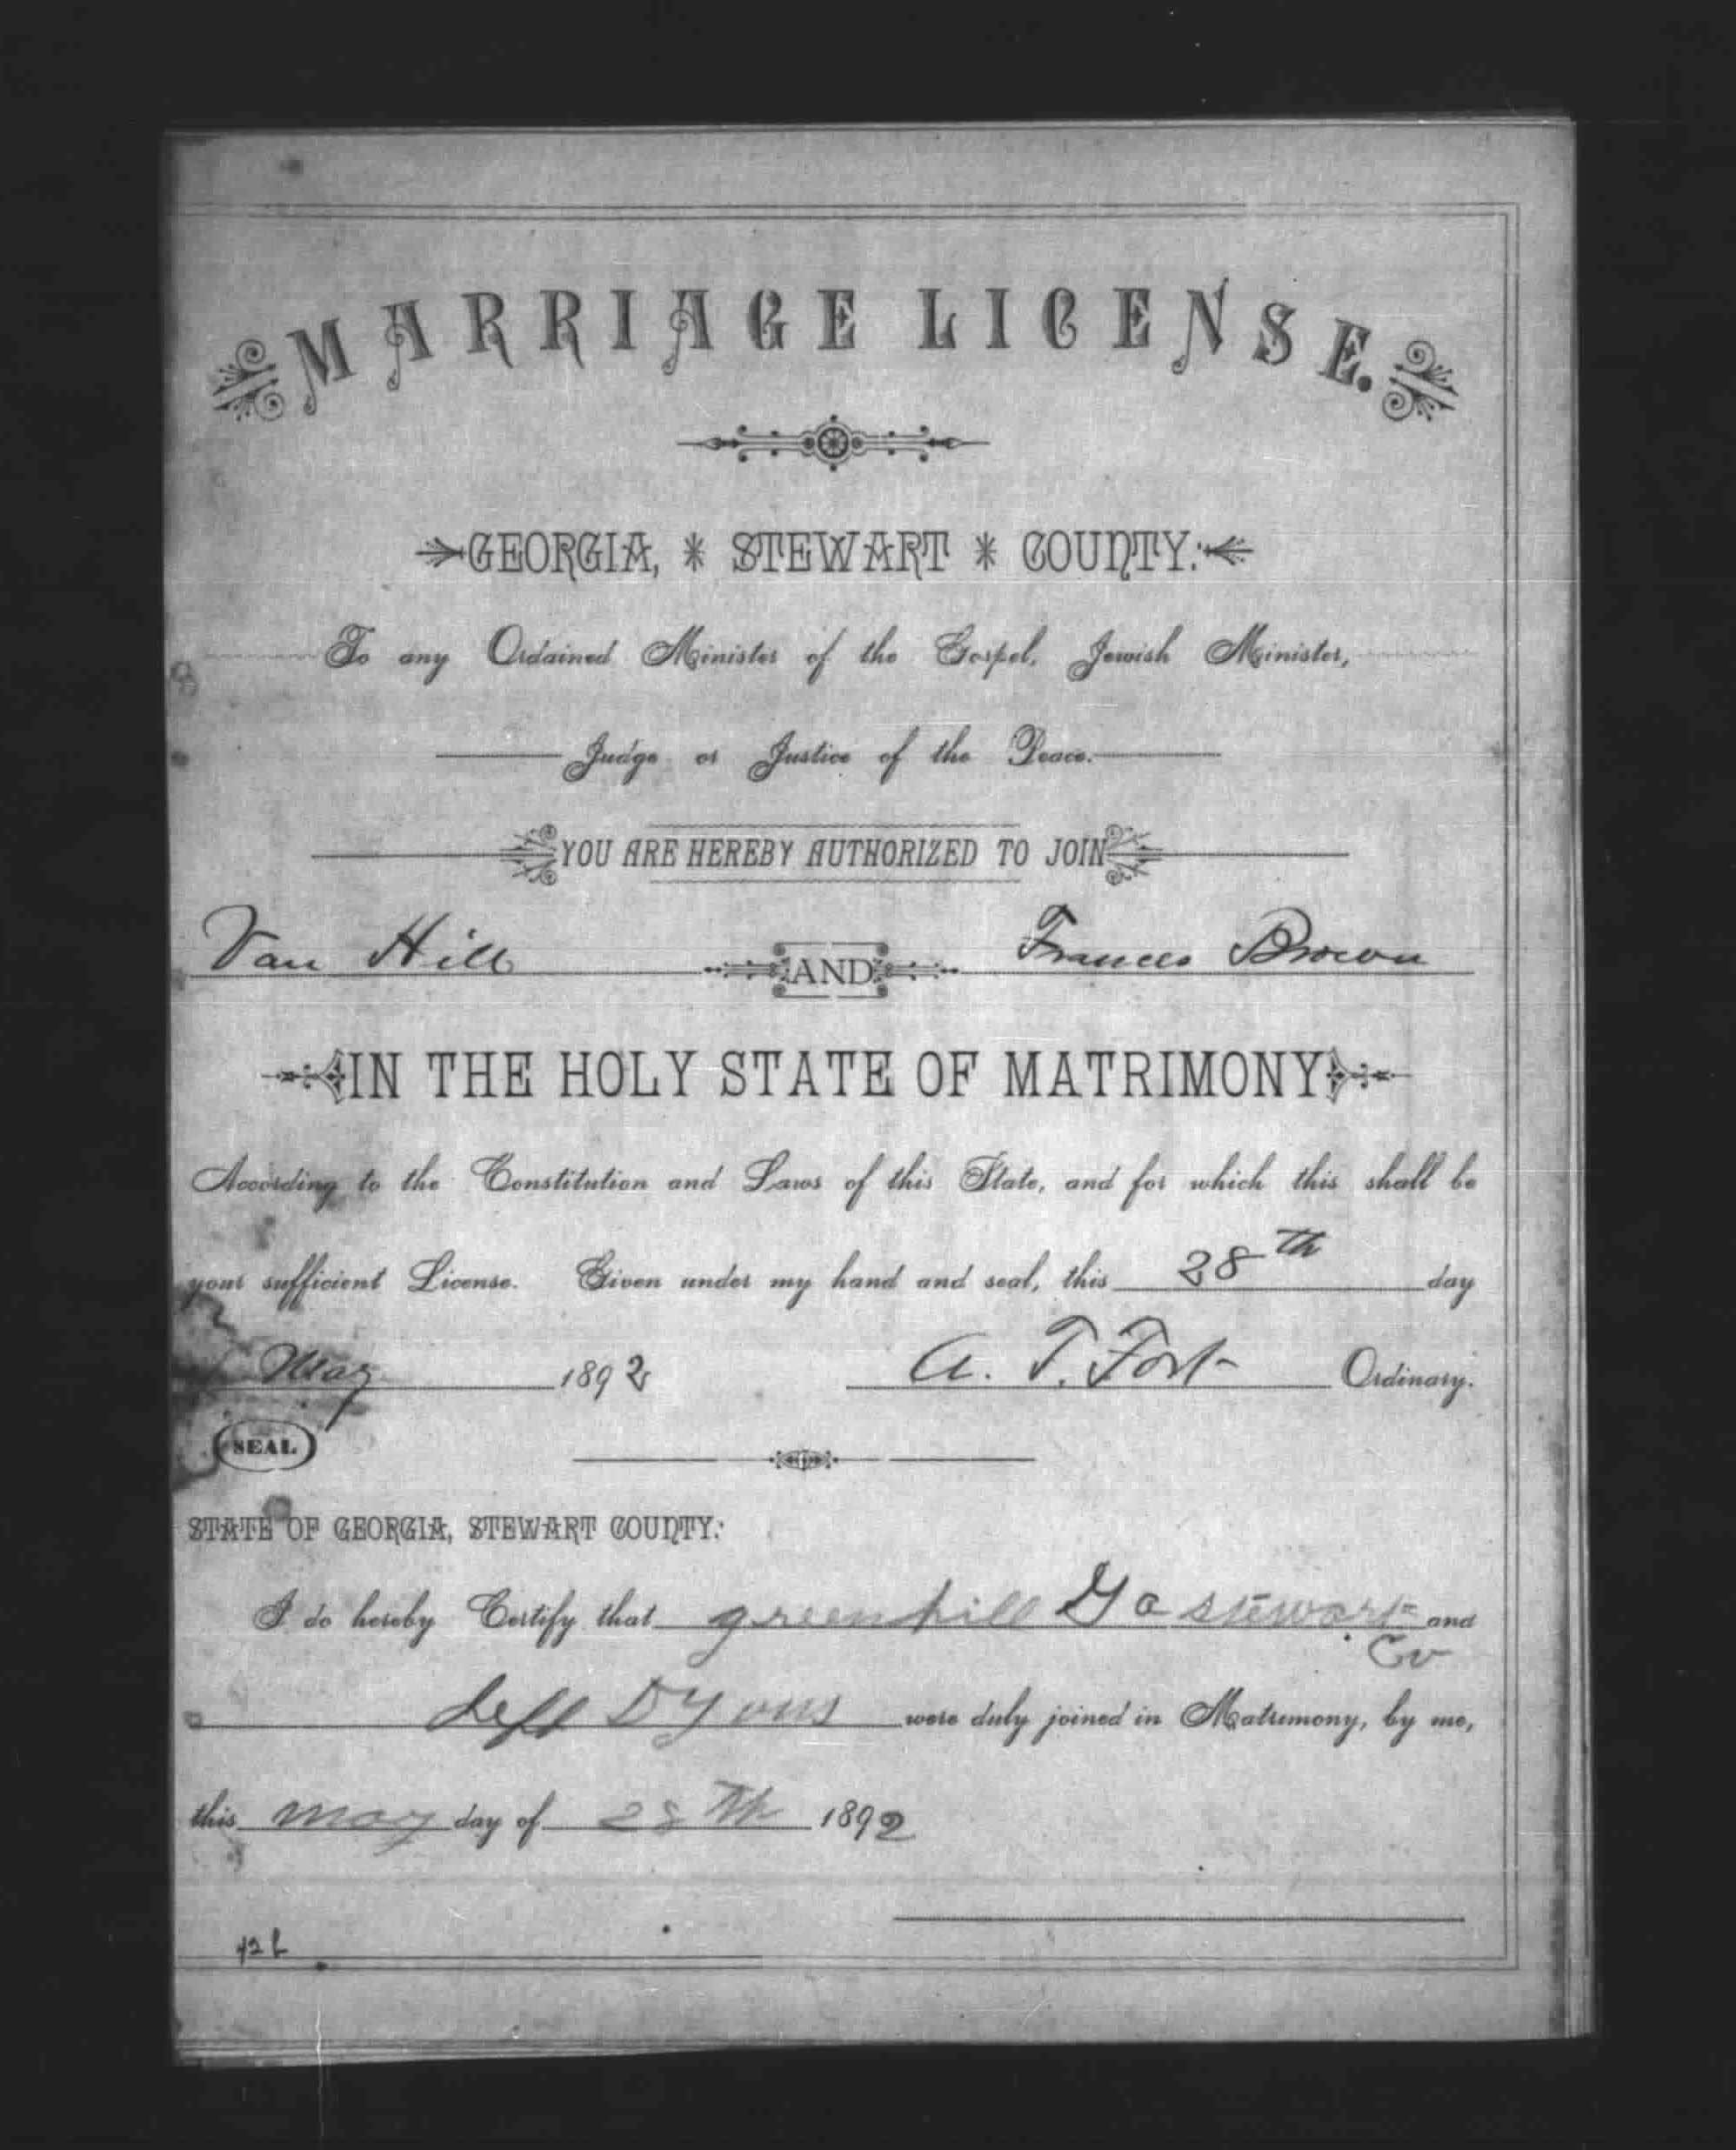 MARRIAGE LICENSE.
GEORGIA, * STEWART * COUNTY:
To any Ordained Minister of the Gospel, Jewish Minister,
Judge or Justice of the Peace.
YOU ARE HEREBY AUTHORIZED TO JOIN
Van Hill AND Frances Brown
IN THE HOLY STATE OF MATRIMONY
According to the Constitution and Laws of this State, and for which this shall be
your sufficient License. Given under my hand and seal, this 28th day
May 1892 A. T. Fort Ordinary.
SEAL
STATE OF GEORGIA, STEWART COUNTY:
I do hereby Certify that greenhill Ga stewart and
Co
were duly joined in Matrimony, by me,
this may day of 28 Th 1892